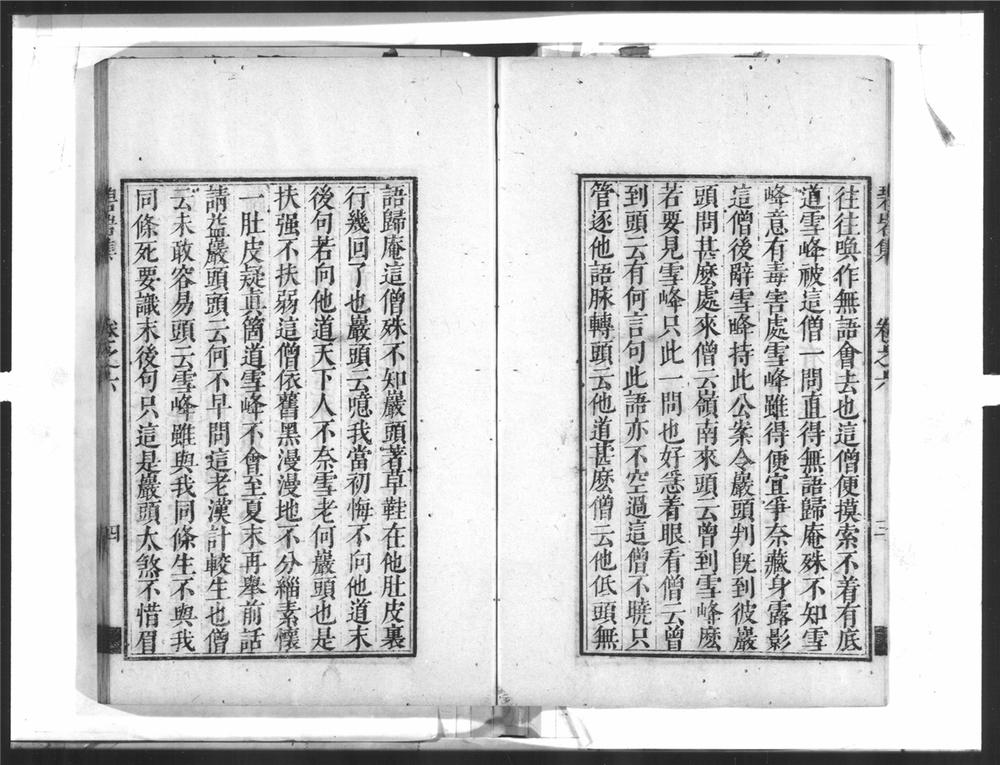 碧岩集 卷之六 三
往往喚作無語會去也這僧便摸索不着有底
道雪峰被這僧一問直得無語歸庵殊不知雪
峰意有毒害處雪峰雖得便宜爭奈藏身露影
這僧後辭雪峰持此公案令巖頭判旣到彼巖
頭問甚麽處來僧云嶺南來頭云曾到雪峰麽
若要見雪峰只此一問也好急着眼看僧云曾
到頭云有何言句此語亦不空過這僧不曉只
管逐他語脉轉頭云他道甚麽僧云他低頭無
語歸庵這僧殊不知巖頭著草鞋在他肚皮裏
行幾回了也巖頭云噫我當初悔不向他道末
後句若向他道天下人不奈雪老何巖頭也是
扶强不扶弱這僧依舊黑漫漫地不分緇素懷
一肚皮疑眞箇道雪峰不會至夏末再舉前話
請益巖頭頭云何不早問這老漢計較生也僧
云未敢容易頭云雪峰雖與我同條生不與我
同條死要識末後句只這是巖頭太煞不惜眉
碧岩集 卷之六 四